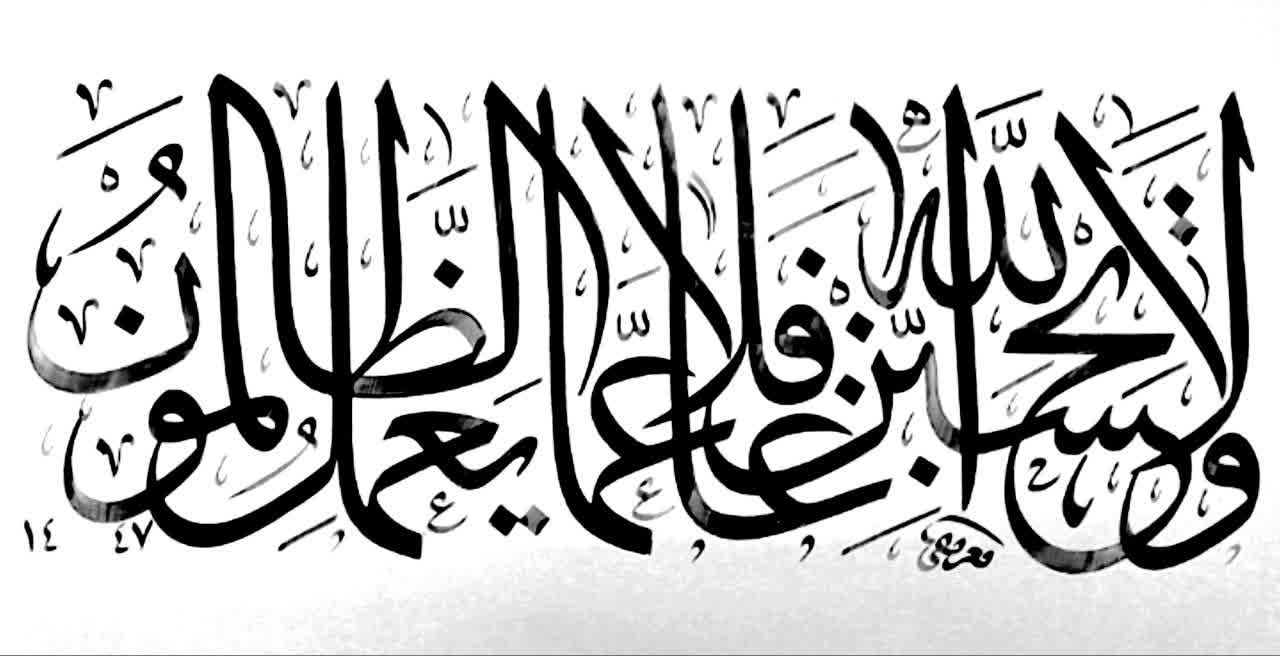 وَلَا تَحْسَبَنَّ اللَّهَ غَافِلًا عَمَّا يَعْمَلُ الظَّالِمُونَ
١٤٤٧